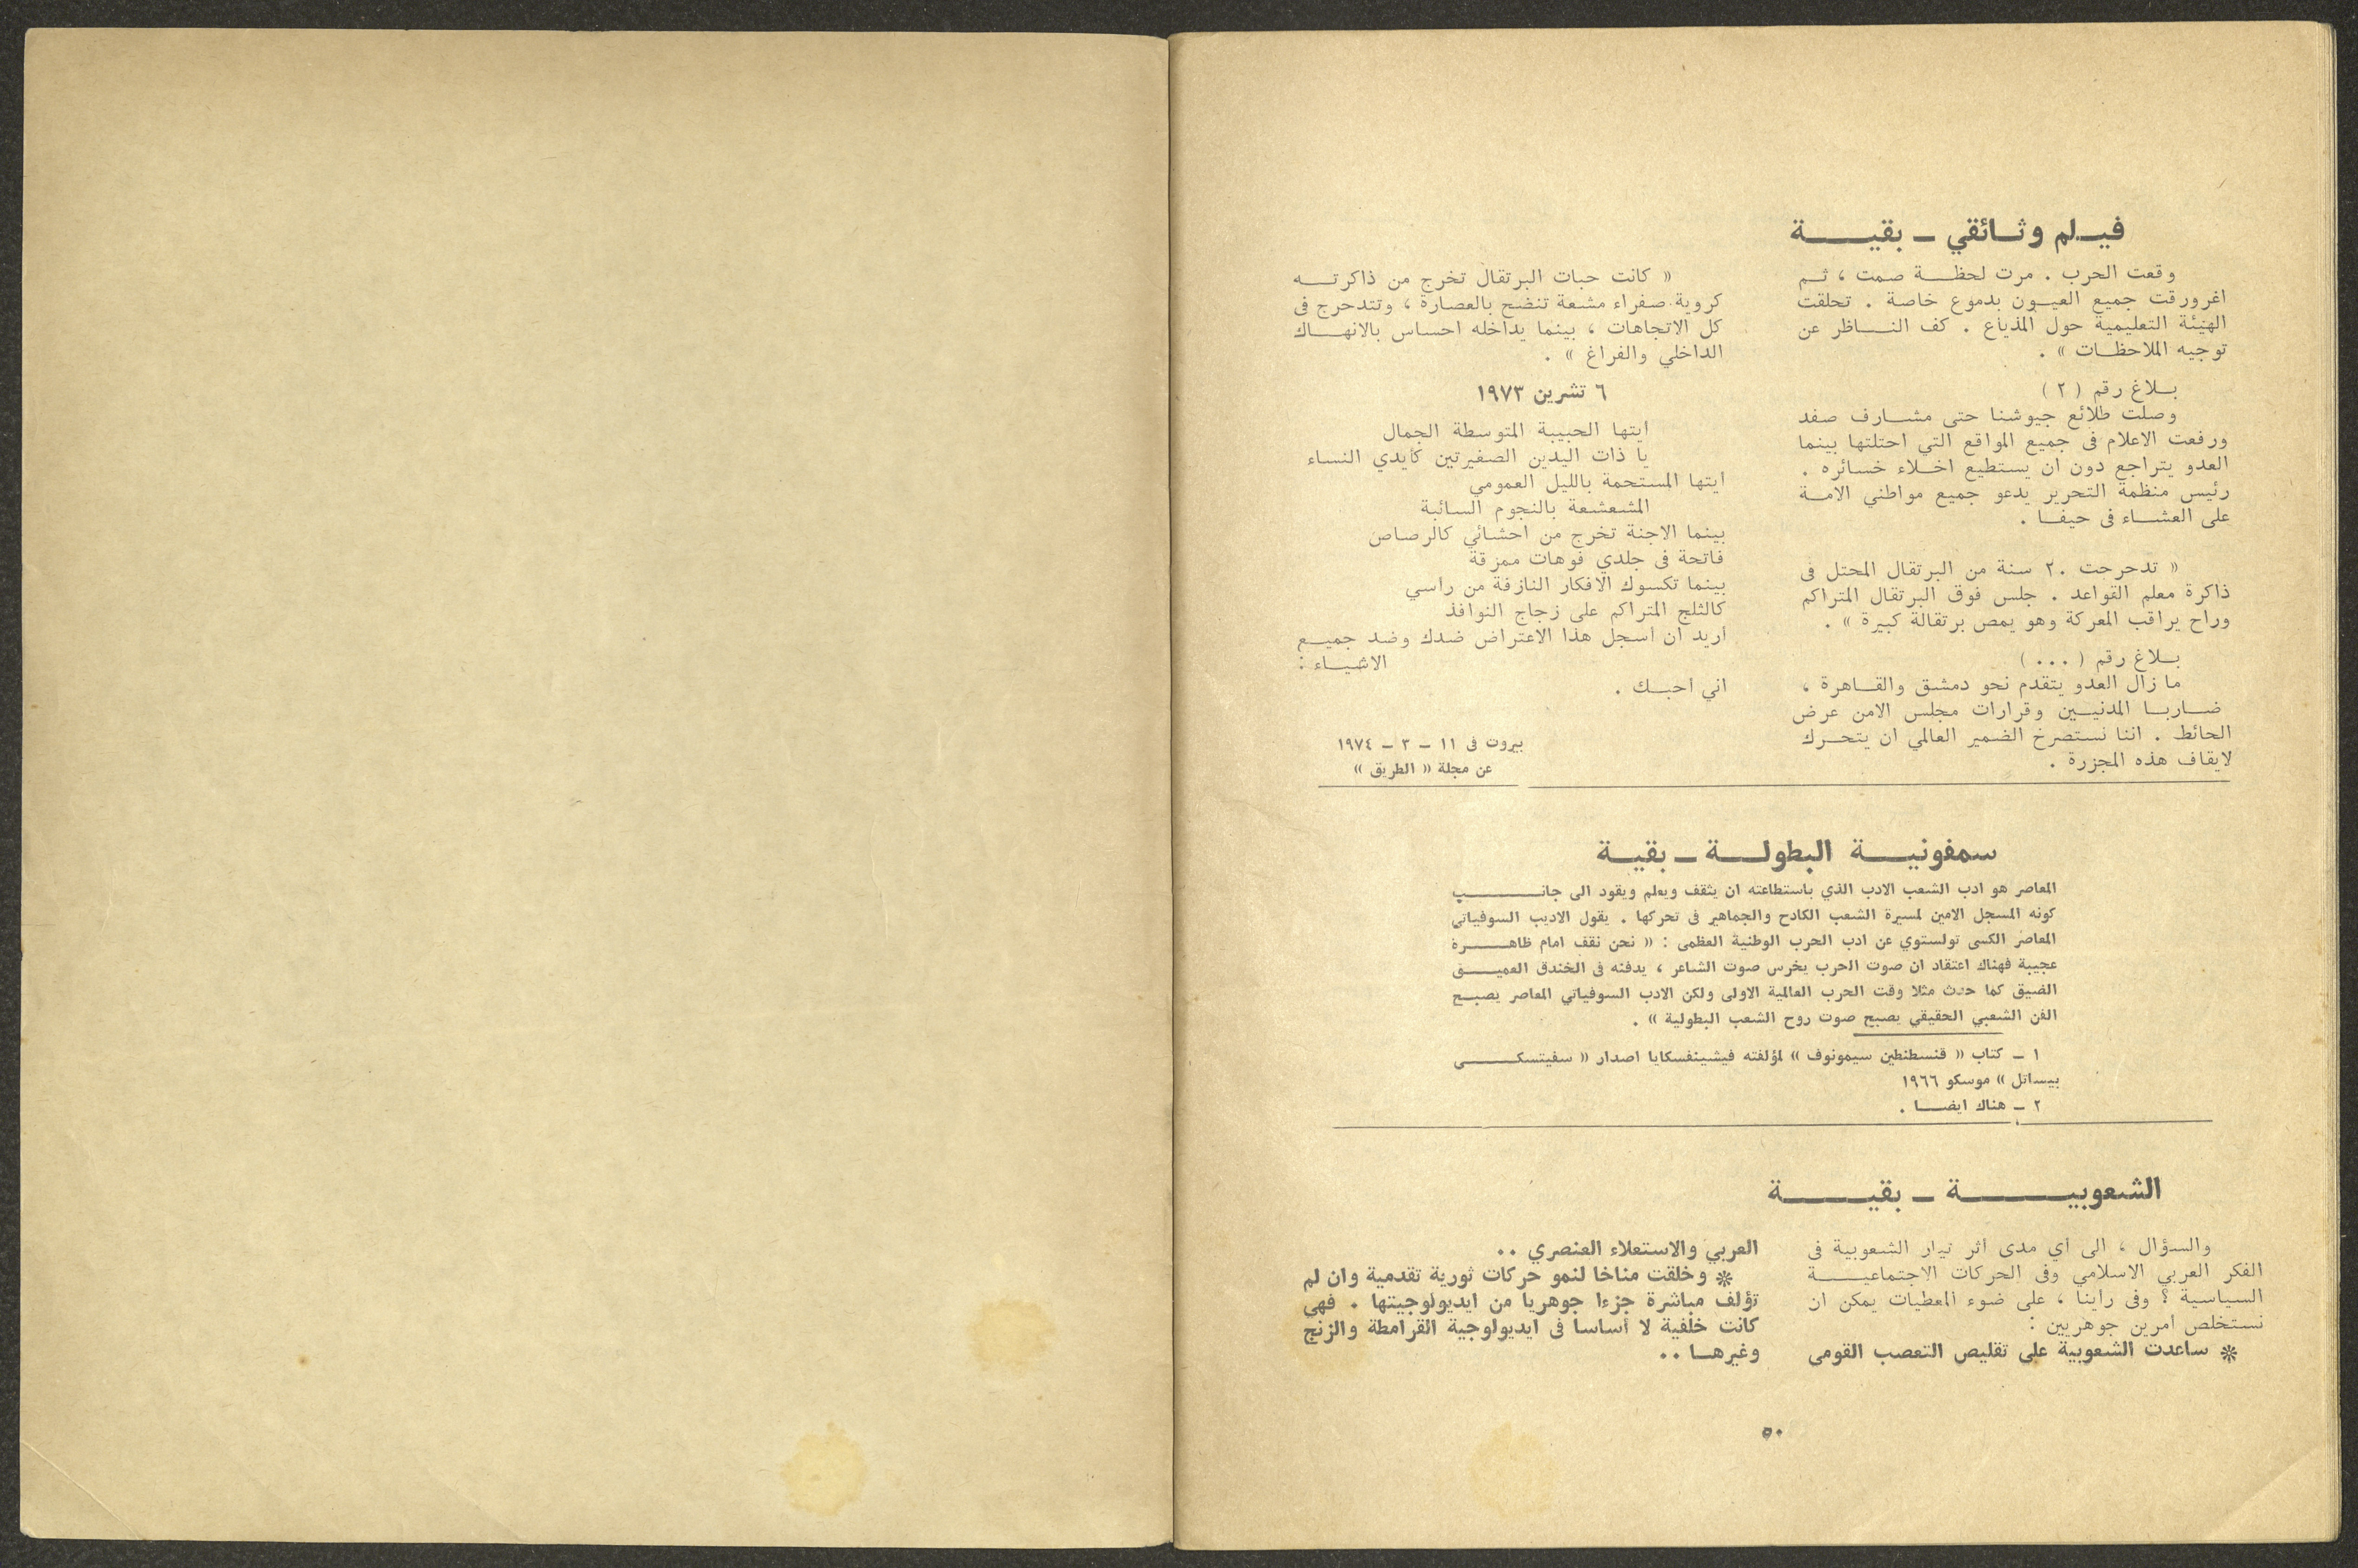 فيلم وثائقي - بقية
وقعت الحرب . مرت لحظة صمت ، ثم
اغرورقت جميع العيون بدموع خاصة . تحلقت
الهيئة التعليمية حول المذياع . كف الناظر عن
توجيه الملاحظات » .
بلاغ رقم ( ٢ )
وصلت طلائع جيوشنا حتى مشارف صفد
ورفعت الاعلام فى جميع المواقع التي احتلتها بينما
العدو يتراجع دون ان يستطيع اخلاء خسائره .
رئيس منظمة التحرير يدعو جميع مواطني الامة
على العشاء فى حيفا .
« تدحرجت ٢٠ سنة من البرتقال المحتل فى
ذاكرة معلم القواعد . جلس فوق البرتقال المتراكم
وراح يراقب المعركة وهو يمص برتقالة كبيرة » .
بلاغ رقم ( ... )
ما زال العدو يتقدم نحو دمشق والقاهرة ،
ضاربا المدنيين وقرارات مجلس الامن عرض
الحائط . اننا نستصرخ الضمير العالمي ان يتحرك
لايقاف هذه المجزرة .
« كانت حبات البرتقال تخرج من ذاكرته
كروية صفراء مشعة تنضح بالعصارة ، وتتدحرج فى
كل الاتجاهات ، بينما يداخله احساس بالانهاك
الداخلي والفراغ » .
٦ تشرين ١٩٧٣
ايتها الحبيبة المتوسطة الجمال
يا ذات اليدين الصغيرتين كأيدي النساء
ايتها المستحمة بالليل العمومي
المشعشعة بالنجوم السائبة
بينما الاجنة تخرج من احشائي كالرصاص
فاتحة فى جلدي فوهات ممزقة
بينما تكسوك الافكار النازفة من راسي
كالثلج المتراكم على زجاج النوافذ
أريد ان أسجل هذا الاعتراض ضدك وضد جميع
الاشياء :
اني احبك .
بيروت فى ١١ - ٣ - ١٩٧٤
عن مجلة « الطريق »
سمفونية البطولة - بقية
المعاصر هو ادب الشعب الادب الذي باستطاعته ان يثقف ويعلم ويقود الى جانب
كونه المسجل الامين لمسيرة الشعب الكادح والجماهير فى تحركها . يقول الاديب السوفياتي
المعاصر الكسى تولستوي عن ادب الحرب الوطنية العظمى : « نحن نقف امام ظاهرة
عجيبة فهناك اعتقاد ان صوت الحرب يخرس صوت الشاعر ، يدفنه فى الخندق العميق
الضيق كما حدث مثلا وقت الحرب العالمية الاولى ولكن الادب السوفياتي المعاصر يصبح
الفن الشعبي الحقيقي يصبح صوت روح الشعب البطولية » .
١ - كتاب « قنسطنطين سيمونوف » لمؤلفته فيشينفسكايا اصدار « سفيتسكى
بيساتل » موسكو ١٩٦٦
٢ - هناك ايضا .
الشعوبية - بقية
والسؤال ، الى أي مدى أثر تيار الشعوبية فى
الفكر العربي الاسلامي وفى الحركات الاجتماعية
السياسية ؟ وفى راينا ، على ضوء المعطيات يمكن ان
نستخلص امرين جوهريين :
* ساعدت الشعوبية على تقليص التعصب القومى
العربي والاستعلاء العنصري ..
* وخلقت مناخا لنمو حركات ثورية تقدمية وان لم
تؤلف مباشرة جزءا جوهريا من ايديولوجيتها . فهى
كانت خلفية لا أساسا فى ايديولوجية القرامطة والزنج
وغيرها ..
٥٠